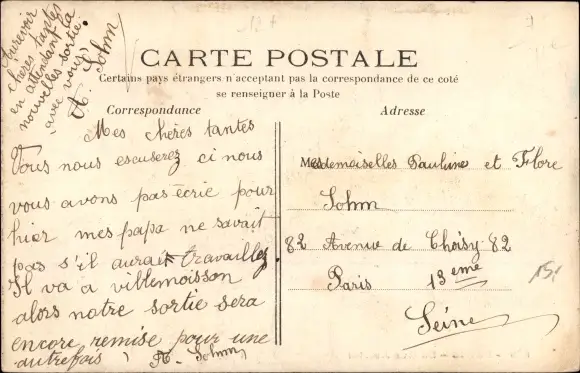 Aurevoir
chères tantes
en attendant la
nouvelles sortie
avec vous
A. Sohm
CARTE POSTALE
Certains pays étrangers n'acceptant pas la correspondance de ce coté
se renseigner à la Poste
Correspondance
Mes chères tantes
Vous nous escuserez ci nous
vous avons pas écrie pour
hier mes papa ne savait
pas s'il aurait travaillez
Il va a villemoisson
alors notre sortie sera
encore remise pour une
autrefois
A. Sohm
Adresse
Mesdemoiselles Pauline et Flore
Sohm
82 Avenue de Choisy 82
Paris 13eme
Seine